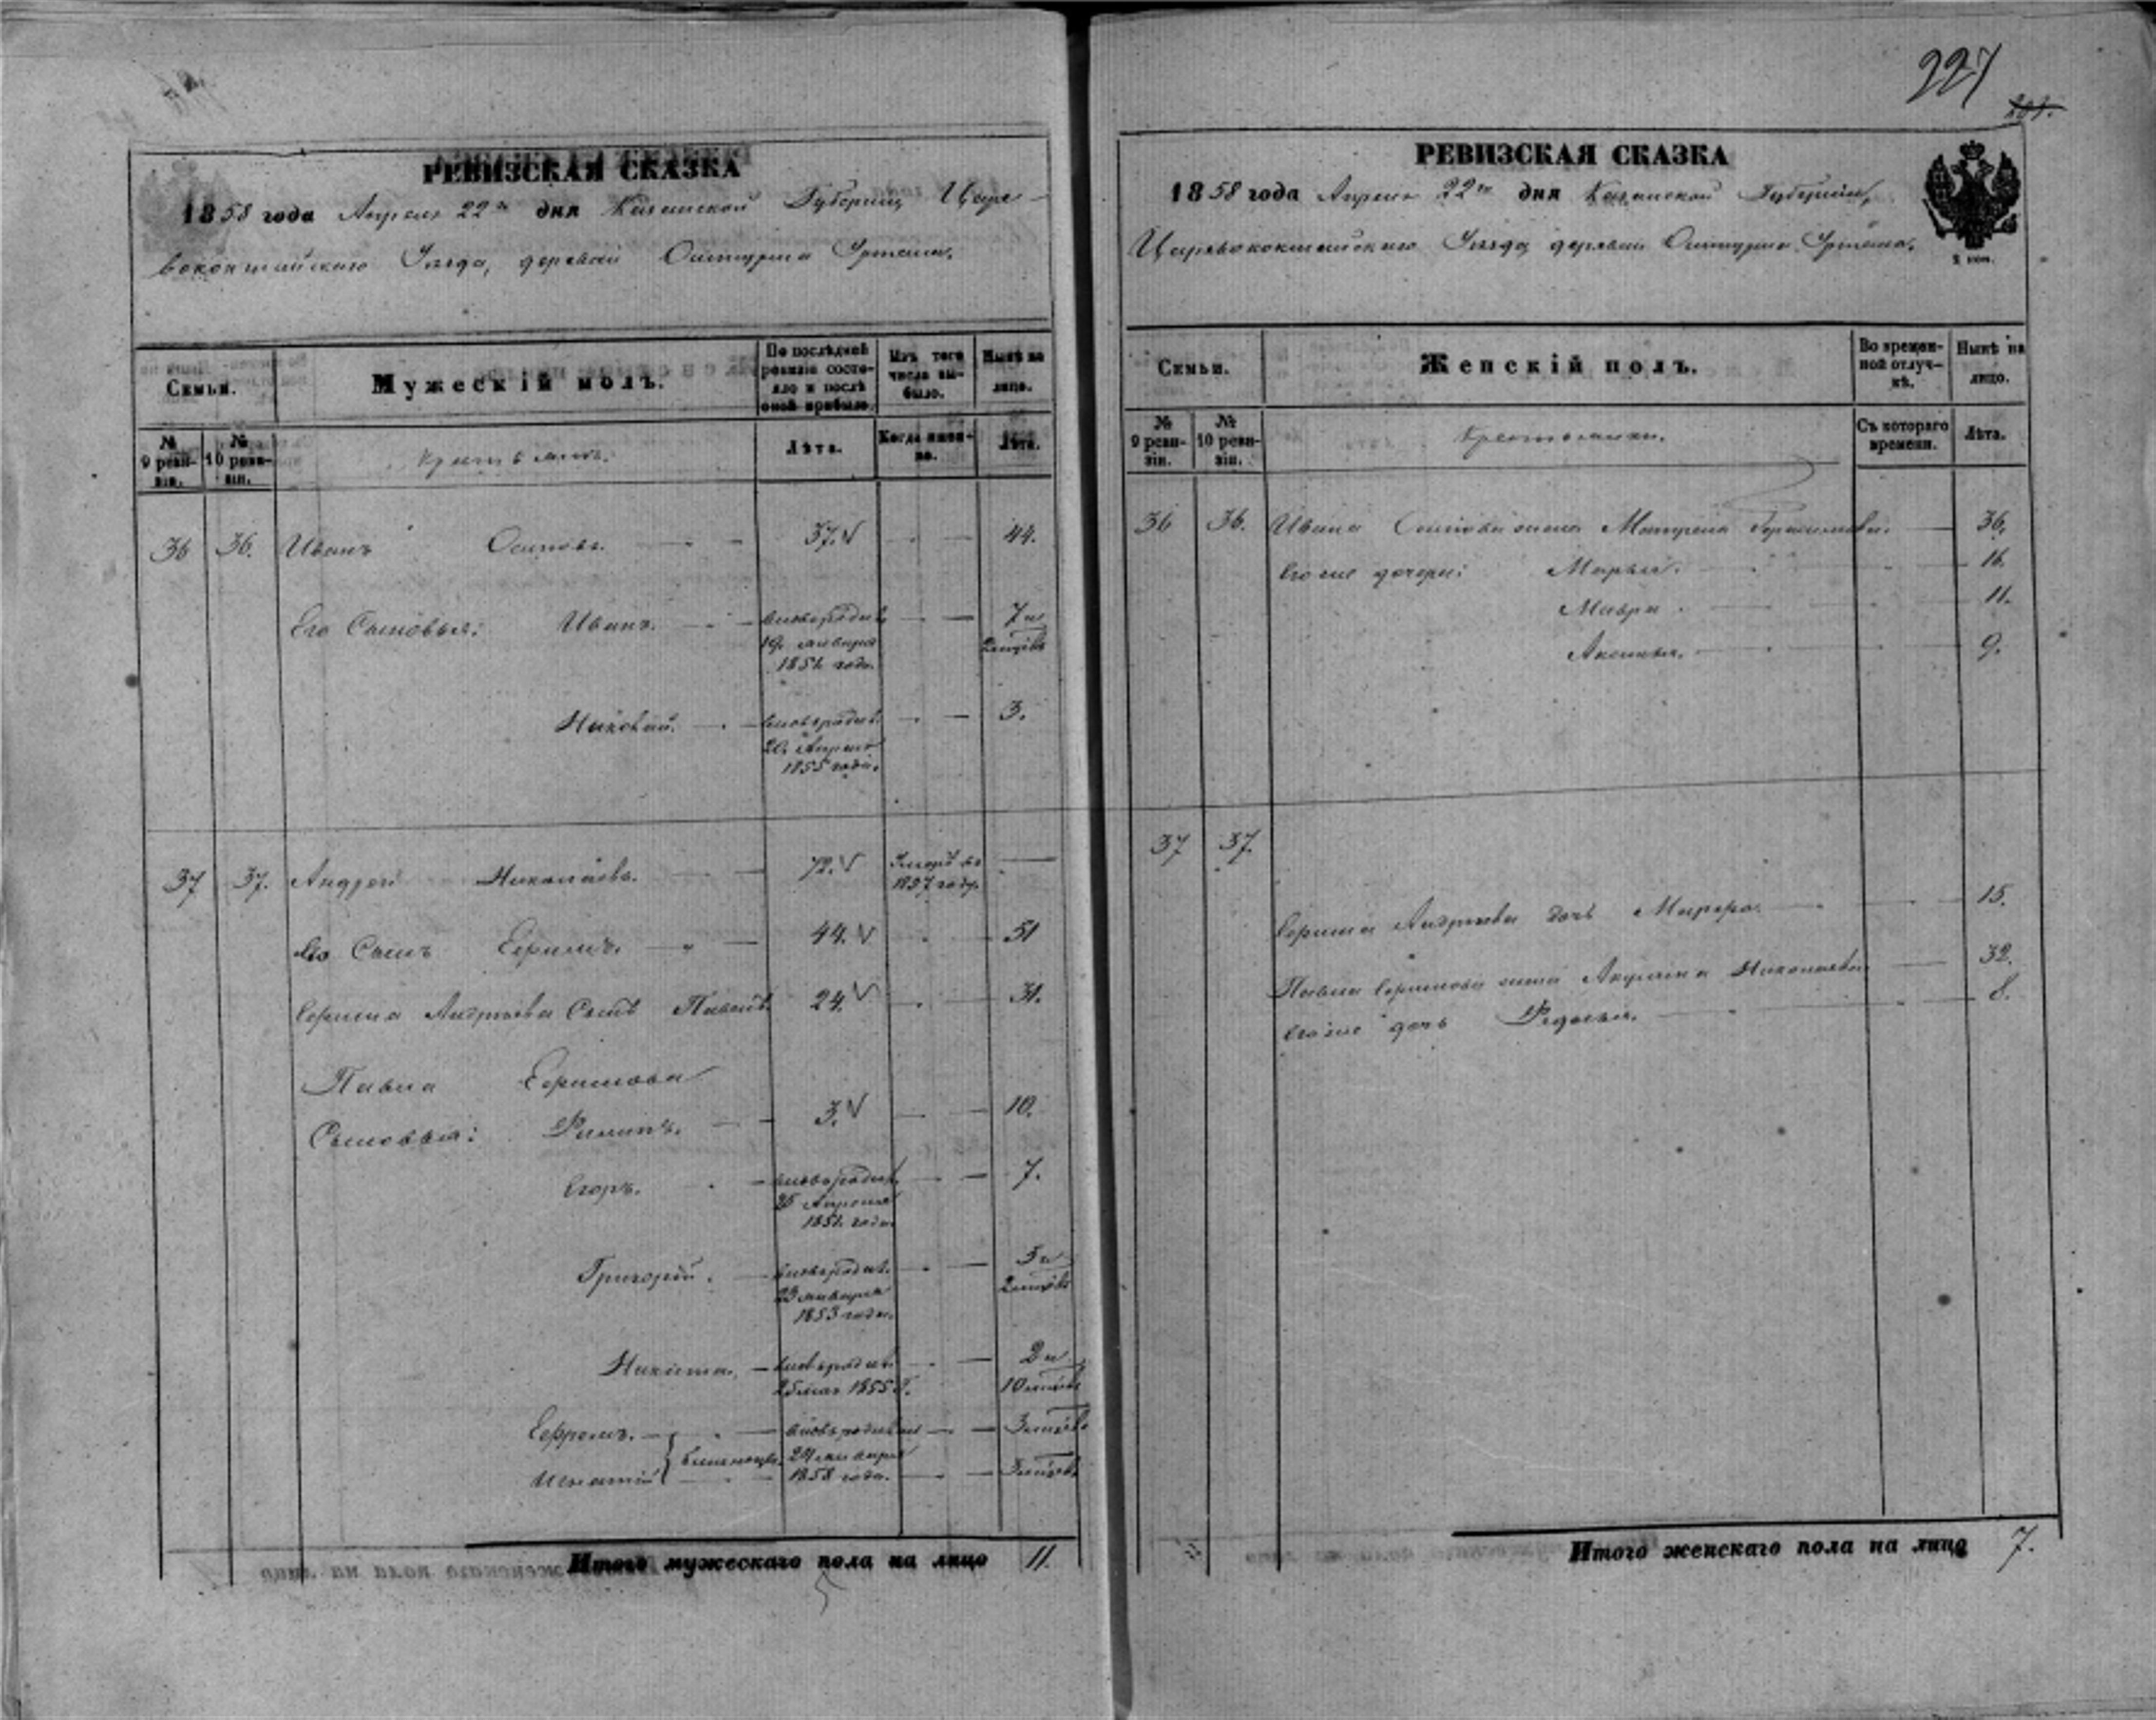 227
РЕВИЗСКАЯ СКАЗКА
1858 года Апреля 22го дня Казанской Губернии, Царе-
вококшайскаго Уѣзда, деревни
Семьи.
Мужескій полъ.
По послѣдней ревизіи состо-
яло и послѣ оной прибыло.
Изъ того числа вы-
было.
Нынѣ на лицо.
№ 9 реви-
зіи.
№ 10 реви-
зіи.
Крестьяне.
Лѣта.
Когда имен-
но.
Лѣта.
36 36. Иванъ Осиповъ. 37. 44.
Его Сыновья: Иванъ. вновьрожд. 7 и
19 января 2 мѣсяцовъ
1851 года.
вновьрожд. 3.
20 Апреля
1855 года.
37 37. Андрей Николаевъ. 72. Умеръ въ
1857 году.
Его Сынъ Ефимъ. 44. 51
Ефима Андреева Сынъ Павелъ 24. 31.
Павла Ефимова
Сыновья: Филипъ. 3. 10.
Егоръ. вновьрожд. 7.
Апреля
1851 года
Григорій. вновьрожд. 5 и
23 января 2 мѣсяцовъ
1853 года.
Никита. вновьрожд. 2 и
25 мая 1855 г. 10 мѣсяцовъ
Ефремъ. вновьрожденныи 3 мѣсяцовъ
близнецы. 24 января
Игнатій 1858 года. 3 мѣсяцовъ
Итого мужескаго пола на лицо 11.
РЕВИЗСКАЯ СКАЗКА
1858 года Апреля 22го дня Казанской Губерніи,
Царевококшайскаго Уѣзда, деревни
Семьи.
Женскій полъ.
Во времен-
ной отлуч-
кѣ.
Нынѣ на лицо.
№ 9 реви-
зіи.
№ 10 реви-
зіи.
Крестьянки.
Съ котораго времени.
Лѣта.
36 36. Ивана Осипова жена Матрена Герасимова. 36.
Его же дочери: Марья. 16.
Мавра 11.
Аксинья. 9.
37 37.
Ефима Андреева дочь 15.
Павла Ефимова жена Акулина Николаева 32.
Его же дочь Федосья. 8.
Итого женскаго пола на лицо 7.